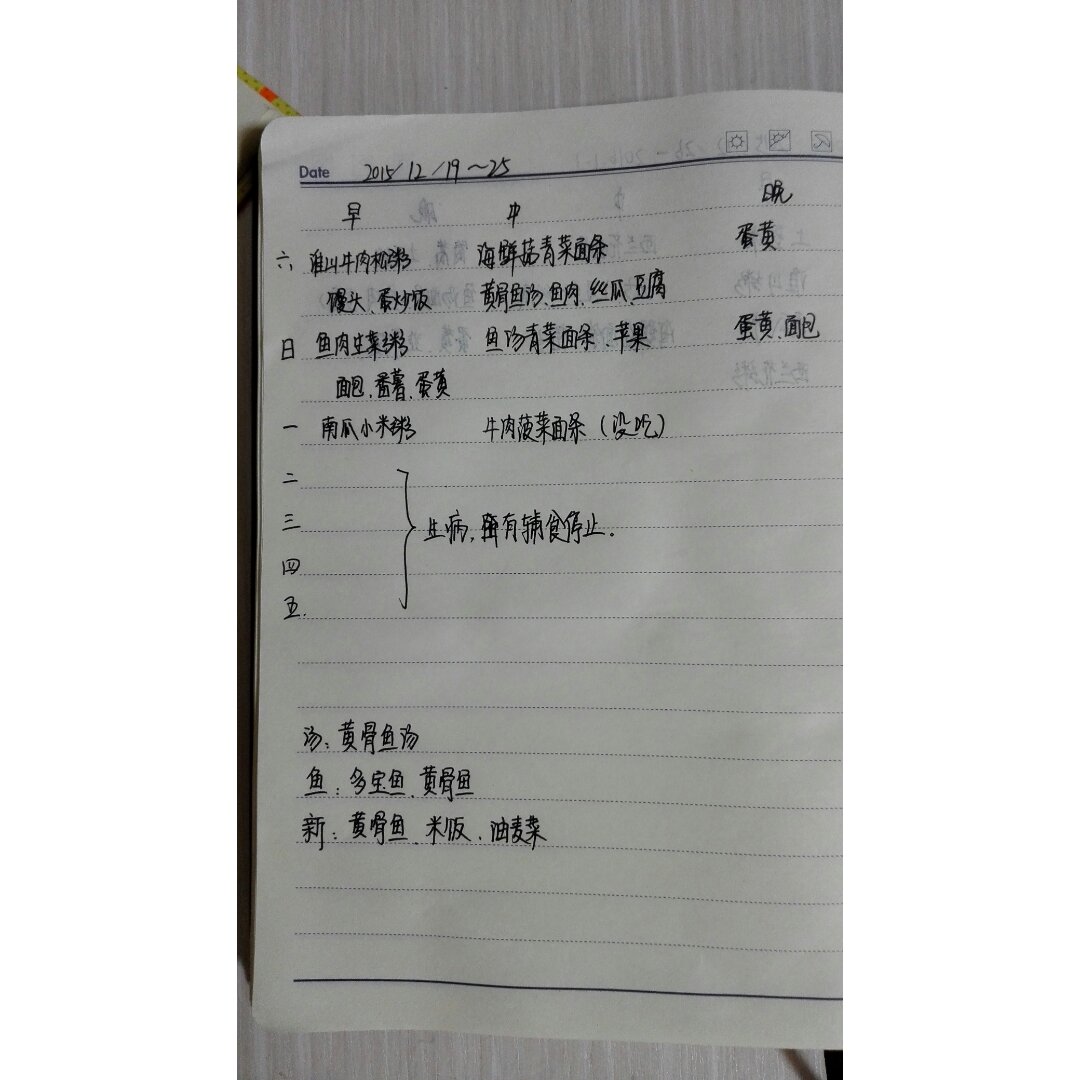 Date 2015/12/19~25
早 中 晚
六 淮山牛肉松粥 海鲜菇青菜面条 蛋黄
馒头、蛋炒饭 黄骨鱼汤、鱼肉、丝瓜、豆腐
日 鱼肉生菜粥 鱼汤青菜面条、苹果 蛋黄、面包
面包、番薯、蛋黄
一 南瓜小米粥 牛肉菠菜面条（没吃）
二
三 生病，所有辅食停止.
四
五.
汤：黄骨鱼汤
鱼：多宝鱼、黄骨鱼
新：黄骨鱼、米饭、油麦菜